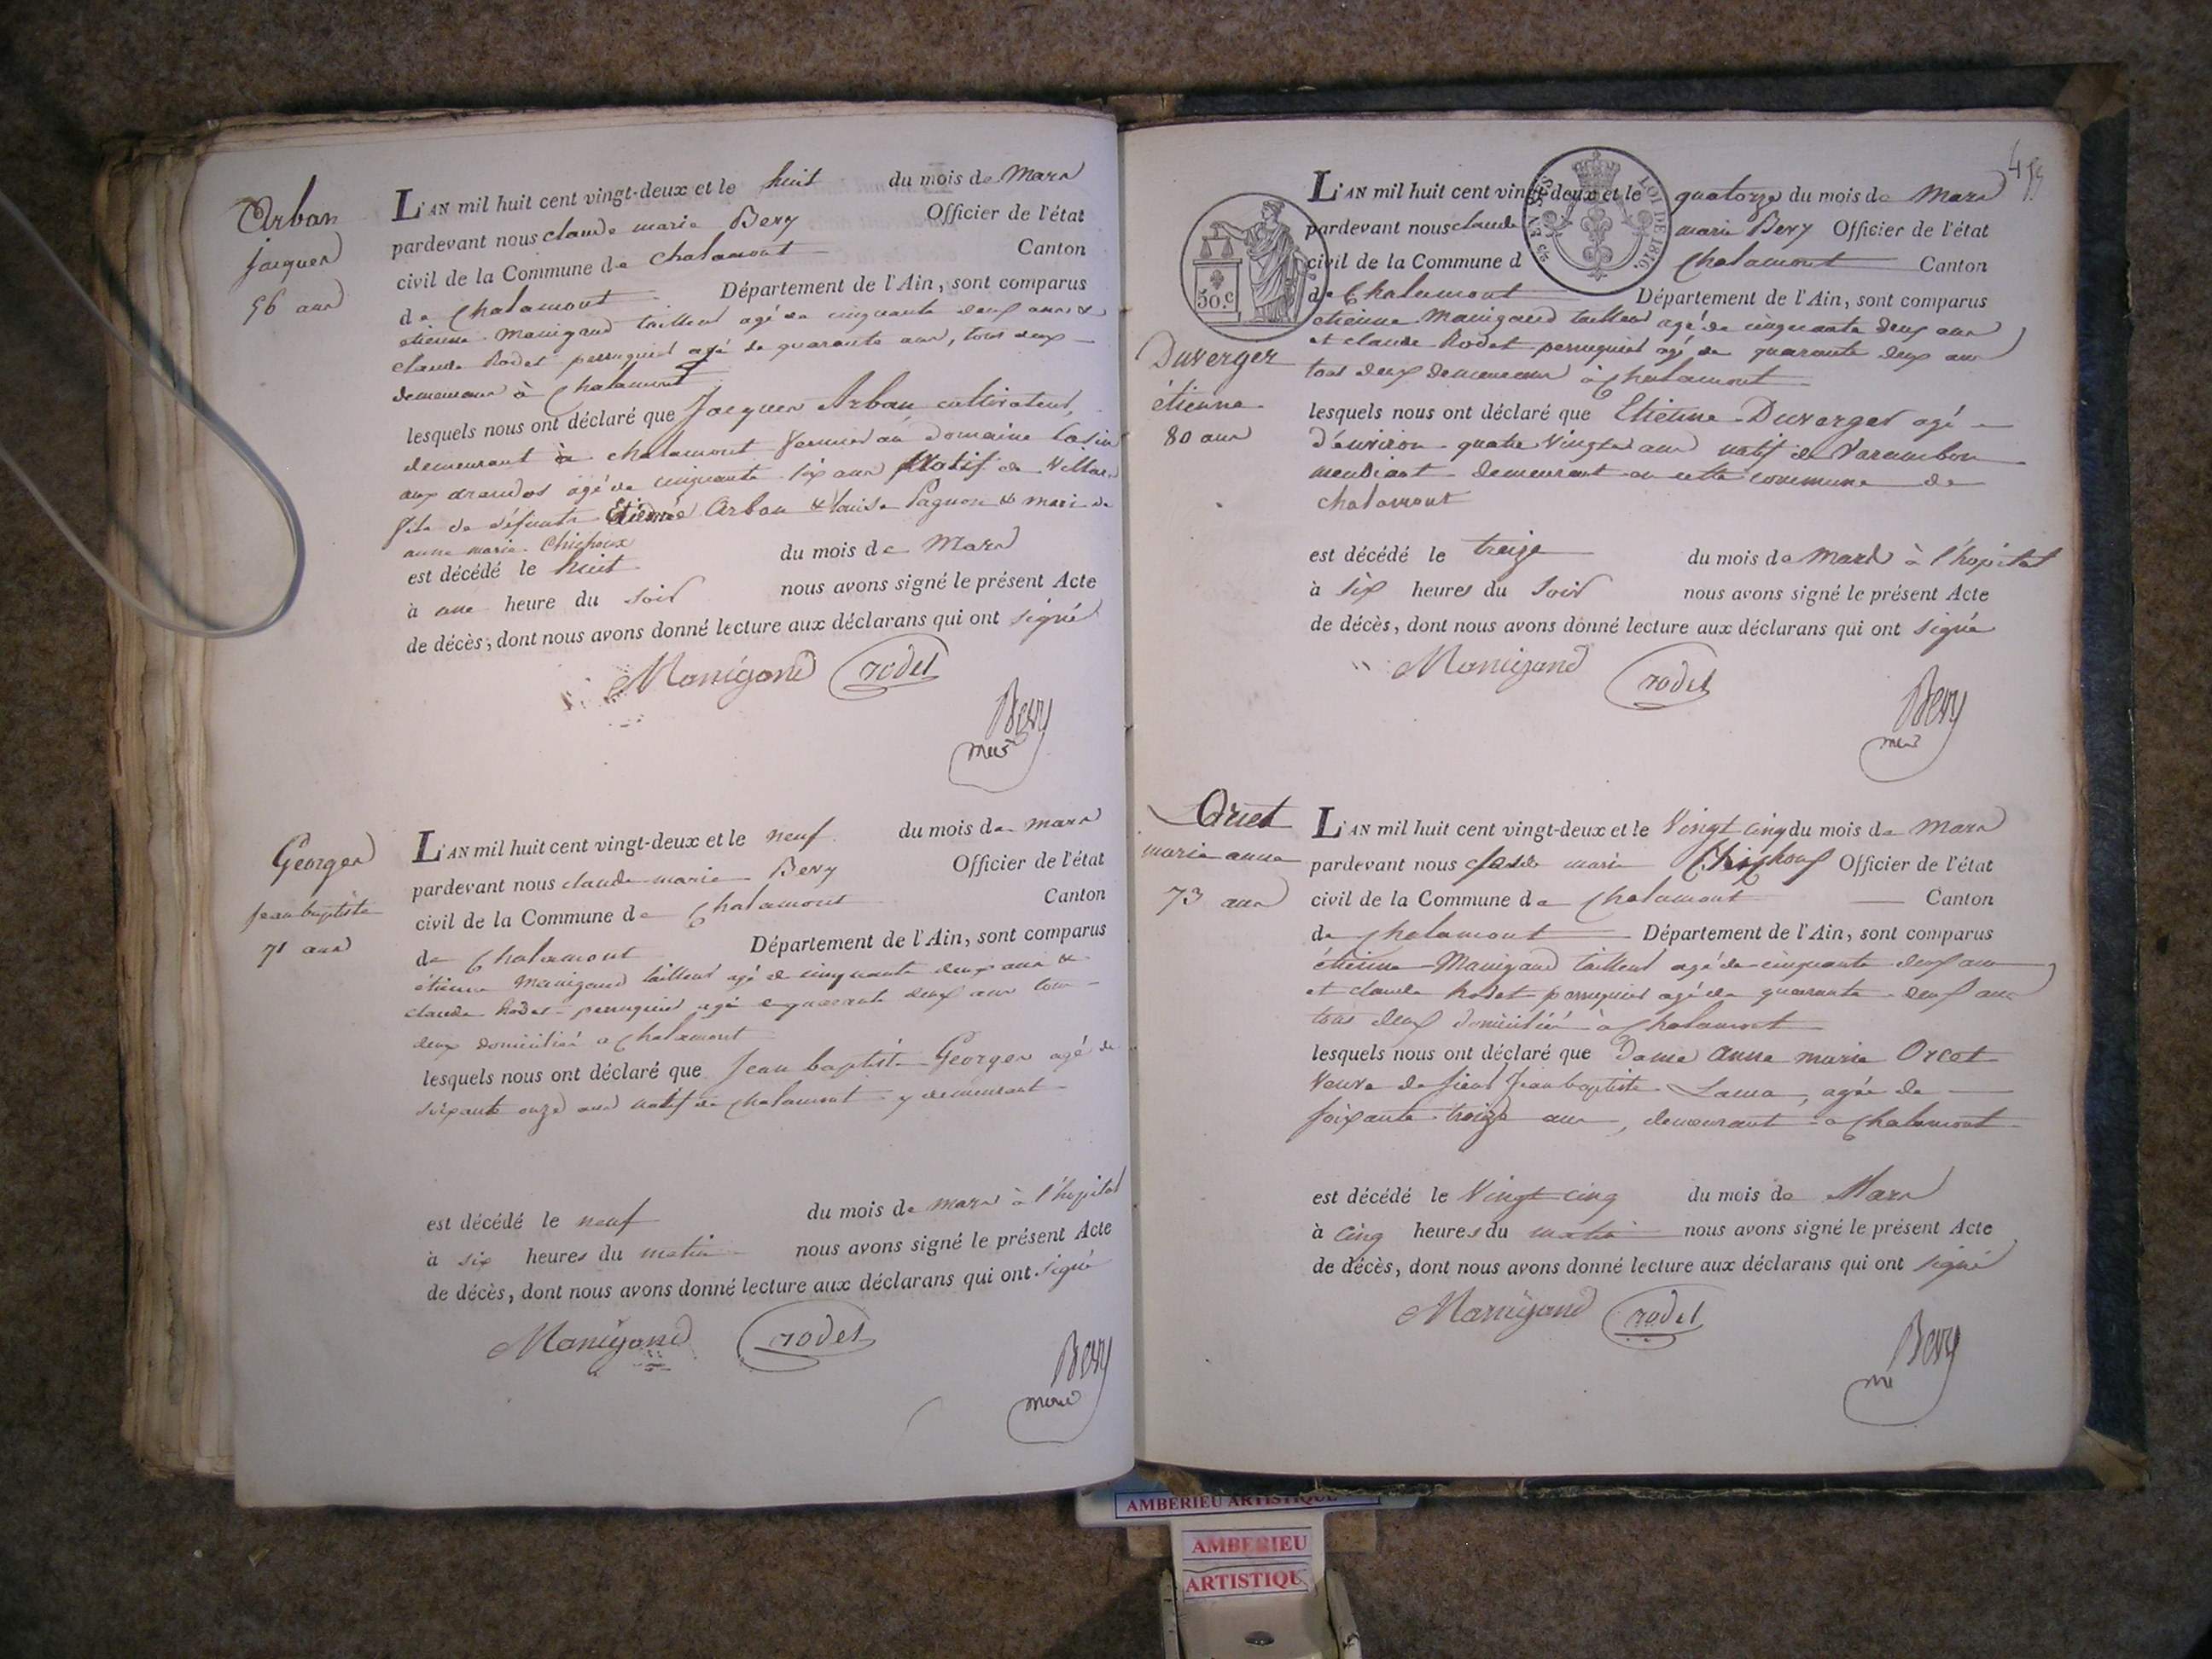 Arban
jacques
56 ans
L'AN mil huit cent vingt-deux et le huit du mois de Mars
pardevant nous claude marie Bevy Officier de l'état
civil de la Commune de Chalamont Canton
de Chalamont Département de l'Ain, sont comparus
étienne Manigand tailleur agé de cinquante deux ans &
claude Rodet perruquier agé de quarante ans, tous deux
demeurans à Chalamont
lesquels nous ont déclaré que Jacques Arban cultivateur,
demeurant à chalamont au Domaine
agé de cinquante six ans Natif de Villars
fils de défunts Etienne Arban & louise Pagnon & mari de
anne marie Chichoux
est décédé le huit du mois de Mars
à une heure du soir nous avons signé le présent Acte
de décès, dont nous avons donné lecture aux déclarans qui ont signé
Manigand rodet
Bevy
Georges
jean baptiste
71 ans
L'AN mil huit cent vingt-deux et le neuf du mois de mars
pardevant nous claude marie Bevy Officier de l'état
civil de la Commune de Chalamont Canton
de Chalamont Département de l'Ain, sont comparus
étienne Manigand tailleur agé de cinquante deux ans &
claude Rodet perruquier agé de quarante deux ans tous
deux domiciliés a Chalamont
lesquels nous ont déclaré que Jean baptiste Georges agé de
soixante onze ans natif de Chalamont y demeurant
est décédé le neuf du mois de mars à l'hopital
à six heures du matin nous avons signé le présent Acte
de décès, dont nous avons donné lecture aux déclarans qui ont signé
Manigand rodet
Bevy
maire
LOI DE 1816.
50.c
Duverger
étienne
80 ans
L'AN mil huit cent vingt-deux et le quatorze du mois de Mars
pardevant nous claude marie Bevy Officier de l'état
civil de la Commune d Chalamont Canton
de Chalamont Département de l'Ain, sont comparus
etienne Manigand tailleur agé de cinquante deux ans
et claude Rodet perruquier agé de quarante deux ans
tous deux demeurans à Chalamont
lesquels nous ont déclaré que Etienne Duverger agé
d'environ quatre Vingts ans natif de Varambon
mendiant demeurant en cette commune de
chalamont
est décédé le treize du mois de Mars à l'hopital
à six heures du Soir nous avons signé le présent Acte
de décès, dont nous avons donné lecture aux déclarans qui ont signé
Manigand rodet
Bevy
marie anne
73 ans
L'AN mil huit cent vingt-deux et le Vingt cinq du mois de Mars
pardevant nous claude marie Officier de l'état
civil de la Commune de Chalamont Canton
de Chalamont Département de l'Ain, sont comparus
étienne Manigand tailleur agé de cinquante deux ans
et claude Rodet perruquier agé de quarante deux ans
tous deux domiciliés à Chalamont
lesquels nous ont déclaré que Dame Anne marie Orcet
Veuve de sieur Jean baptiste agée de
soixante treize ans, demeurant a Chalamont
est décédé le Vingt cinq du mois de Mars
à cinq heures du matin nous avons signé le présent Acte
de décès, dont nous avons donné lecture aux déclarans qui ont signé
Manigand rodet
Bevy
AMBERIEU ARTISTIQUE
AMBERIEU
ARTISTIQU